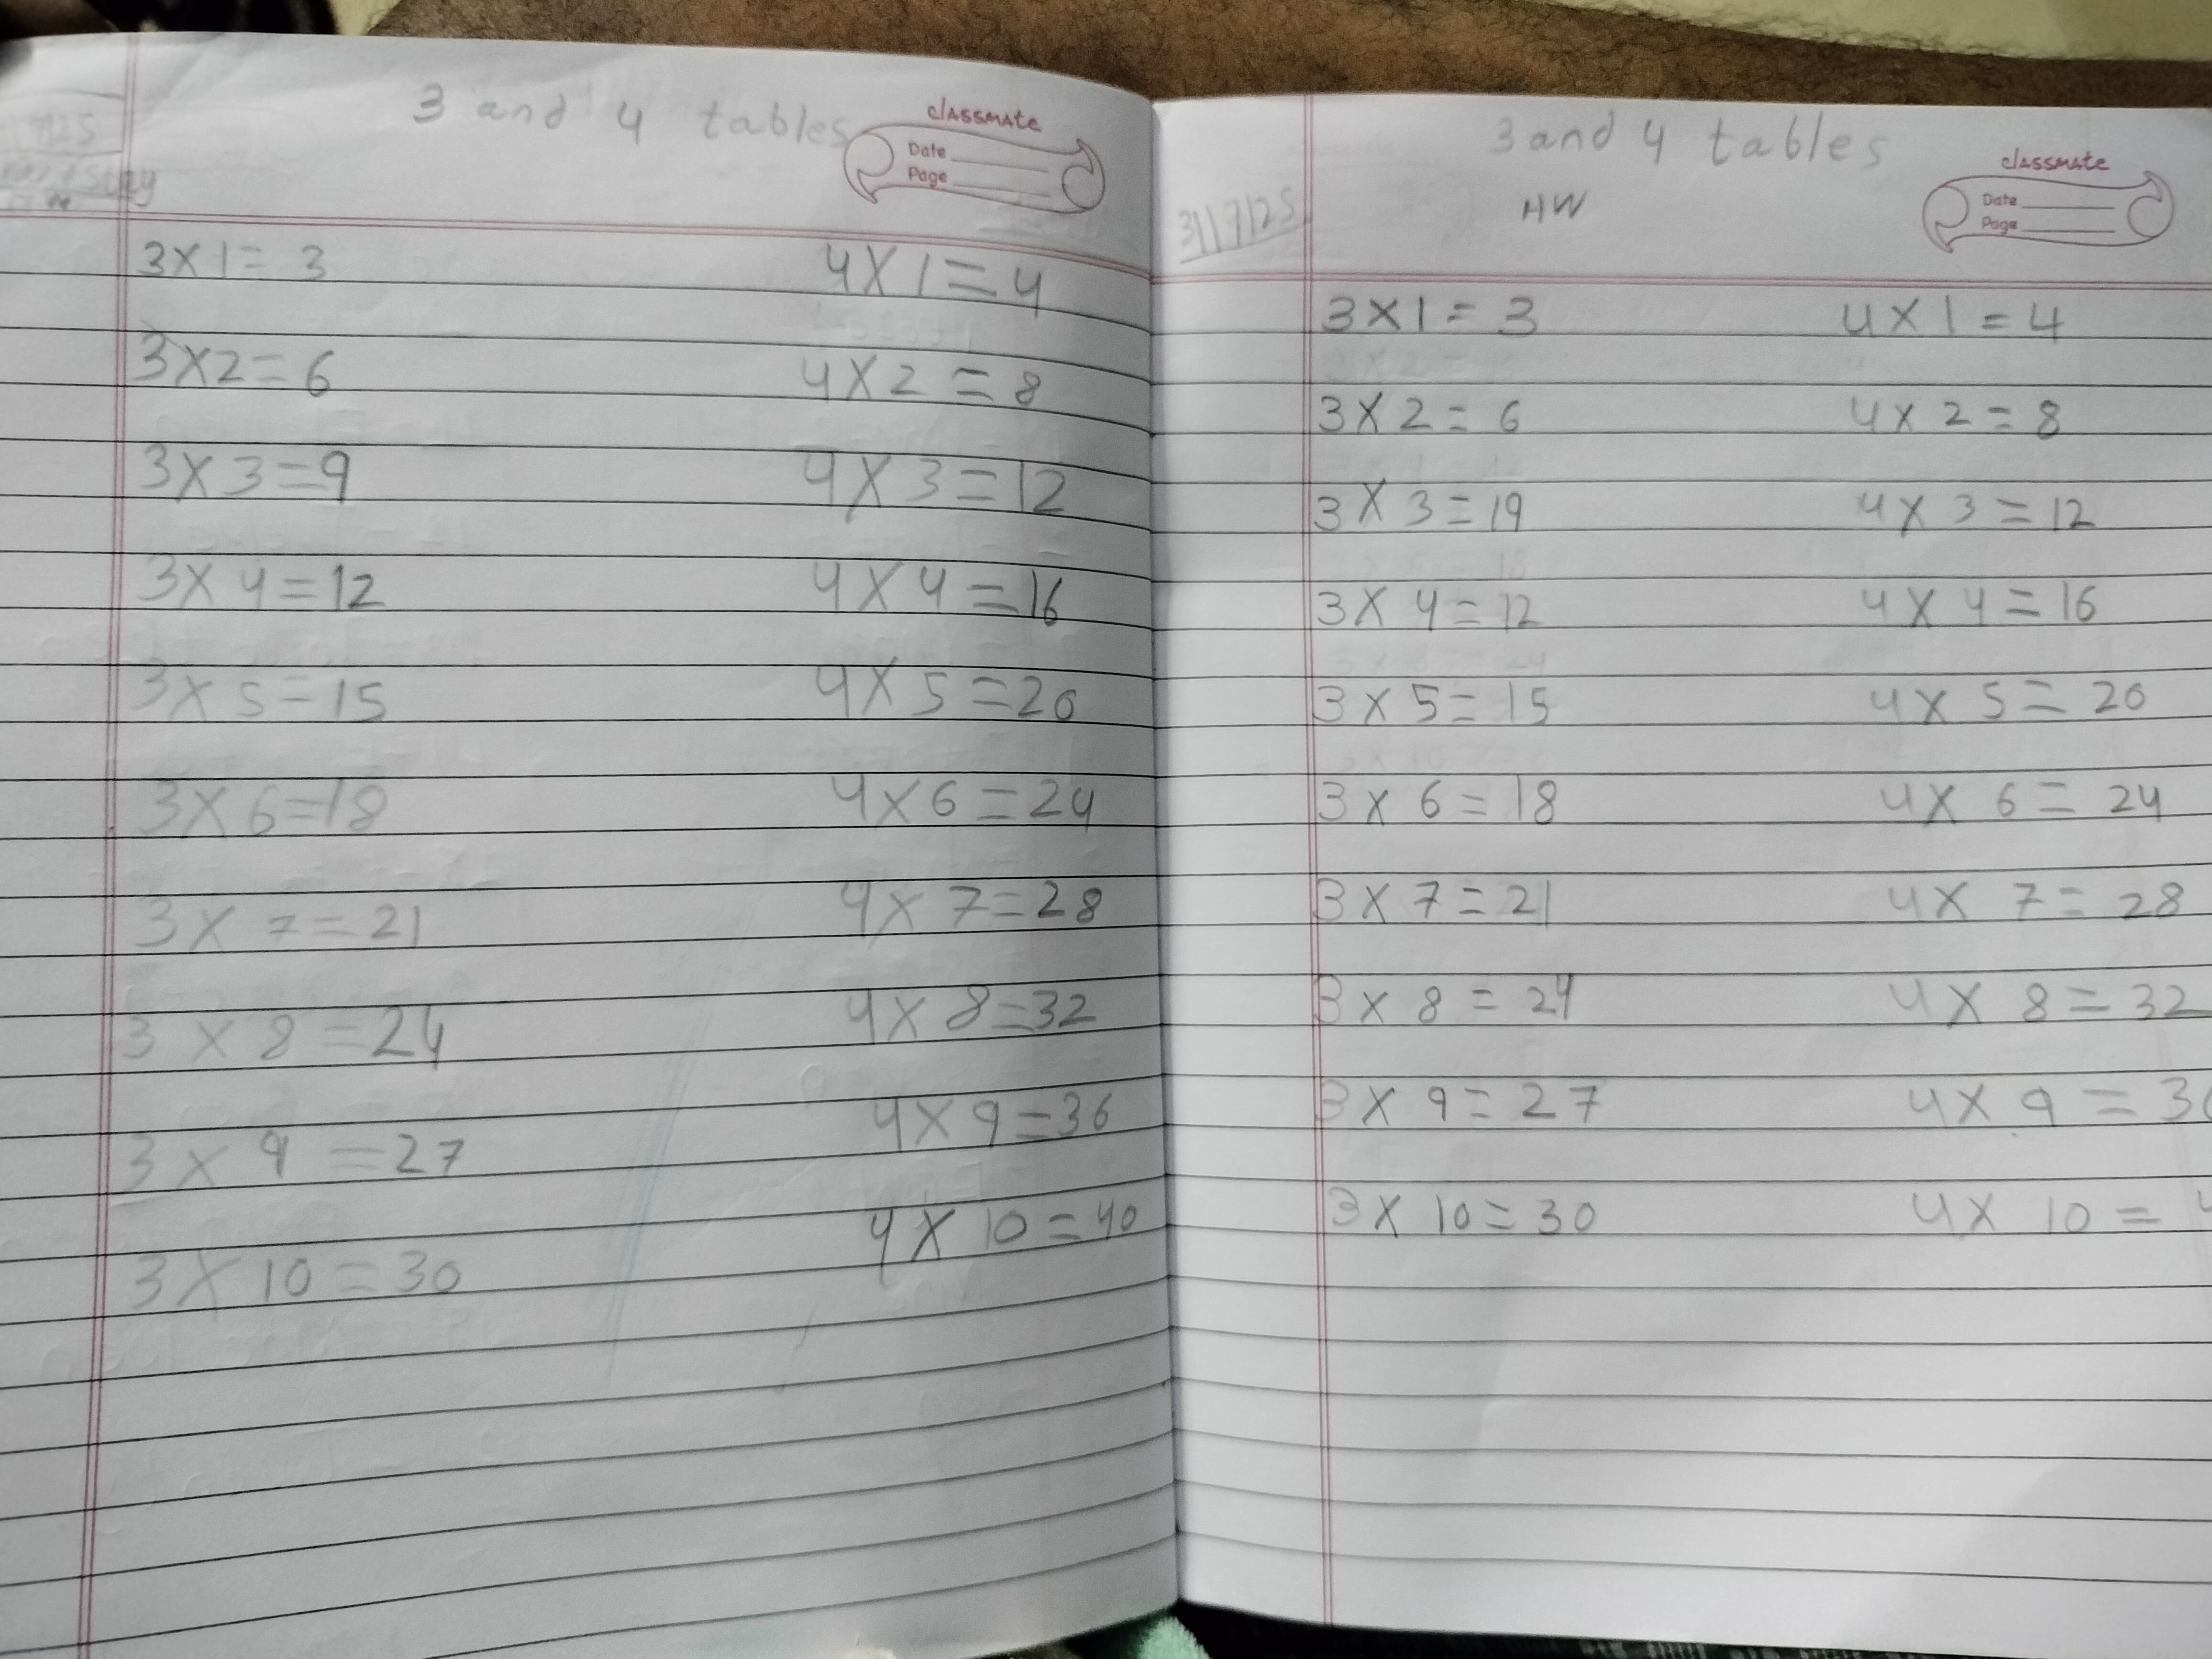 3 and 4 tables
classmate
Date
Page
3 X 1 = 3
3 X 2 = 6
3 X 3 = 9
3 X 4 = 12
3 X 5 = 15
3 X 6 = 18
3 X 7 = 21
3 X 8 = 24
3 X 9 = 27
3 X 10 = 30
4 X 1 = 4
4 X 2 = 8
4 X 3 = 12
4 X 4 = 16
4 X 5 = 20
4 X 6 = 24
4 X 7 = 28
4 X 8 = 32
4 X 9 = 36
4 X 10 = 40
3 and 4 tables
classmate
Date
Page
HW
31/7/25
3 X 1 = 3
3 X 2 = 6
3 X 3 = 19
3 X 4 = 12
3 X 5 = 15
3 X 6 = 18
3 X 7 = 21
3 X 8 = 24
3 X 9 = 27
3 X 10 = 30
4 X 1 = 4
4 X 2 = 8
4 X 3 = 12
4 X 4 = 16
4 X 5 = 20
4 X 6 = 24
4 X 7 = 28
4 X 8 = 32
4 X 9 = 3
4 X 10 =